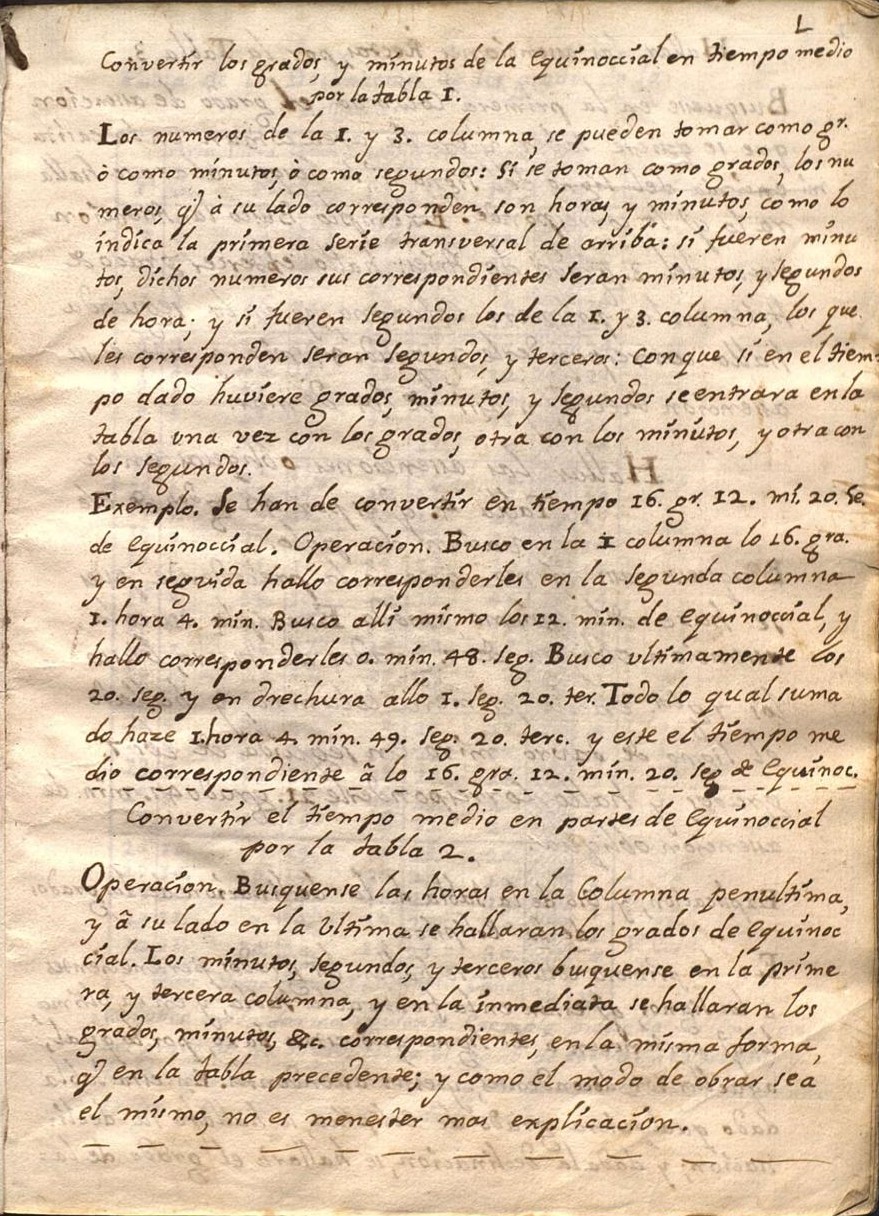 L
Convertir los grados, y minutos de la Equinoccial en tiempo medio
por la tabla I.
Los numeros de la I. y 3. columna, se pueden tomar como gr.
ò como minutos, ò como segundos: Si se toman como grados, los nu
meros, q̃ à su lado corresponden son horas, y minutos, como lo
indica la primera serie transversal de arriba: si fueren minu
tos, dichos numeros sus correspondientes seran minutos, y segundos
de hora; y si fueren segundos los de la I. y 3. columna, los que
les corresponden seran segundos, y terceros: Conque si en el tiem-
po dado huviere grados, minutos, y segundos se entrara en la
tabla vna vez con los grados, otra con los minutos, y otra con
los segundos.
Exemplo. Se han de convertir en tiempo 16. gr. 12. mi. 20. Se.
de Equinoccial. Operacion. Busco en la I columna lo 16. gra.
y en seguida hallo corresponderles en la segunda columna
I. hora 4. min. Busco alli mismo los 12. min. de Equinoccial, y
hallo corresponderles 0. min. 48. seg. Busco vltimamente los
20. seg. y en drechura allo I. seg. 20. ter. Todo lo qual suma
do haze I. hora 4. min. 49. seg. 20. terc. y este el tiempo me
dio correspondiente ã lo 16. gra. 12. min. 20. seg de Equinoc.
Convertir el tiempo medio en partes de Equinoccial
por la tabla 2.
Operacion. Busquense las horas en la Columna penultima,
y ã su lado en la Vltima se hallaran los grados de Equinoc
cial. Los minutos, segundos, y terceros busquense en la prime
ra, y tercera columna, y en la inmediata se hallaran los
grados, minutos, &c. correspondientes, en la misma forma,
q̃ en la tabla precedente; y como el modo de obrar sea
el mismo, no es menester mas explicacion.